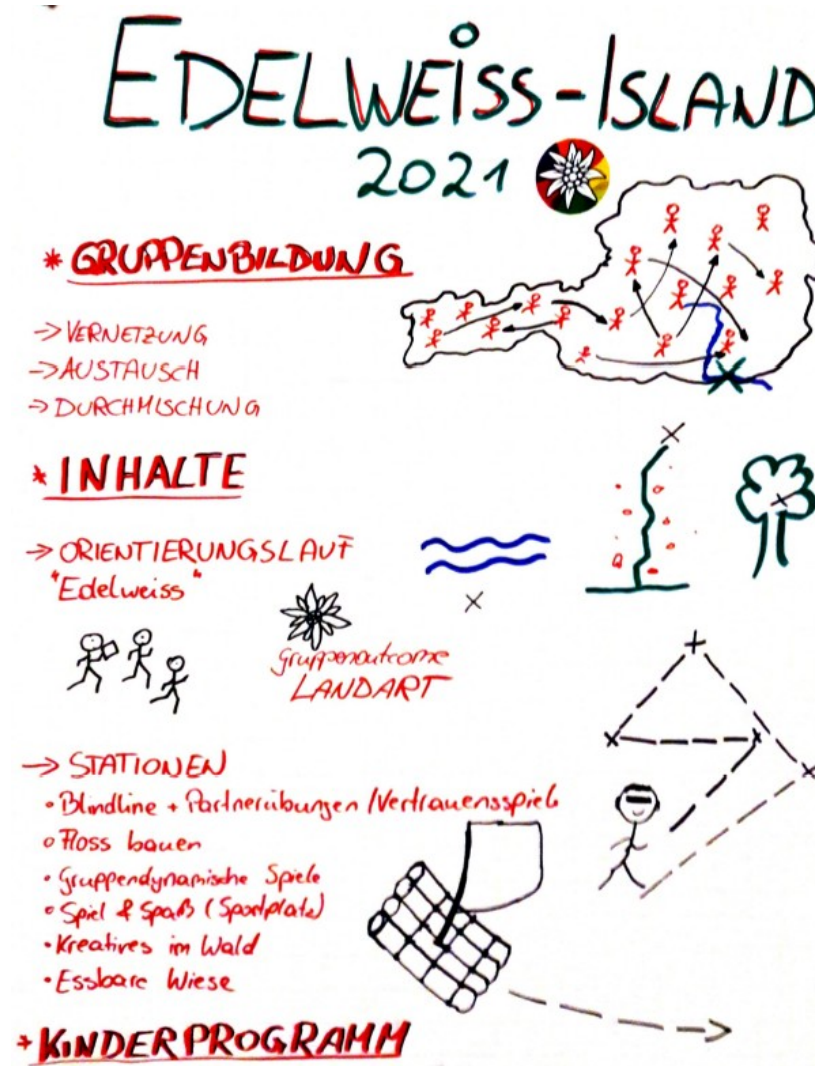 EDELWEISS-ISLAND
2021
* GRUPPENBILDUNG
-> VERNETZUNG
-> AUSTAUSCH
-> DURCHMISCHUNG
* INHALTE
-> ORIENTIERUNGSLAUF
"Edelweiss"
Gruppenoutcome
LANDART
-> STATIONEN
• Blindline + Partnerübungen / Vertrauensspiele
• Floss bauen
• Gruppendynamische Spiele
• Spiel & Spaß (Sportplatz)
• Kreatives im Wald
• Essbare Wiese
* KINDERPROGRAMM